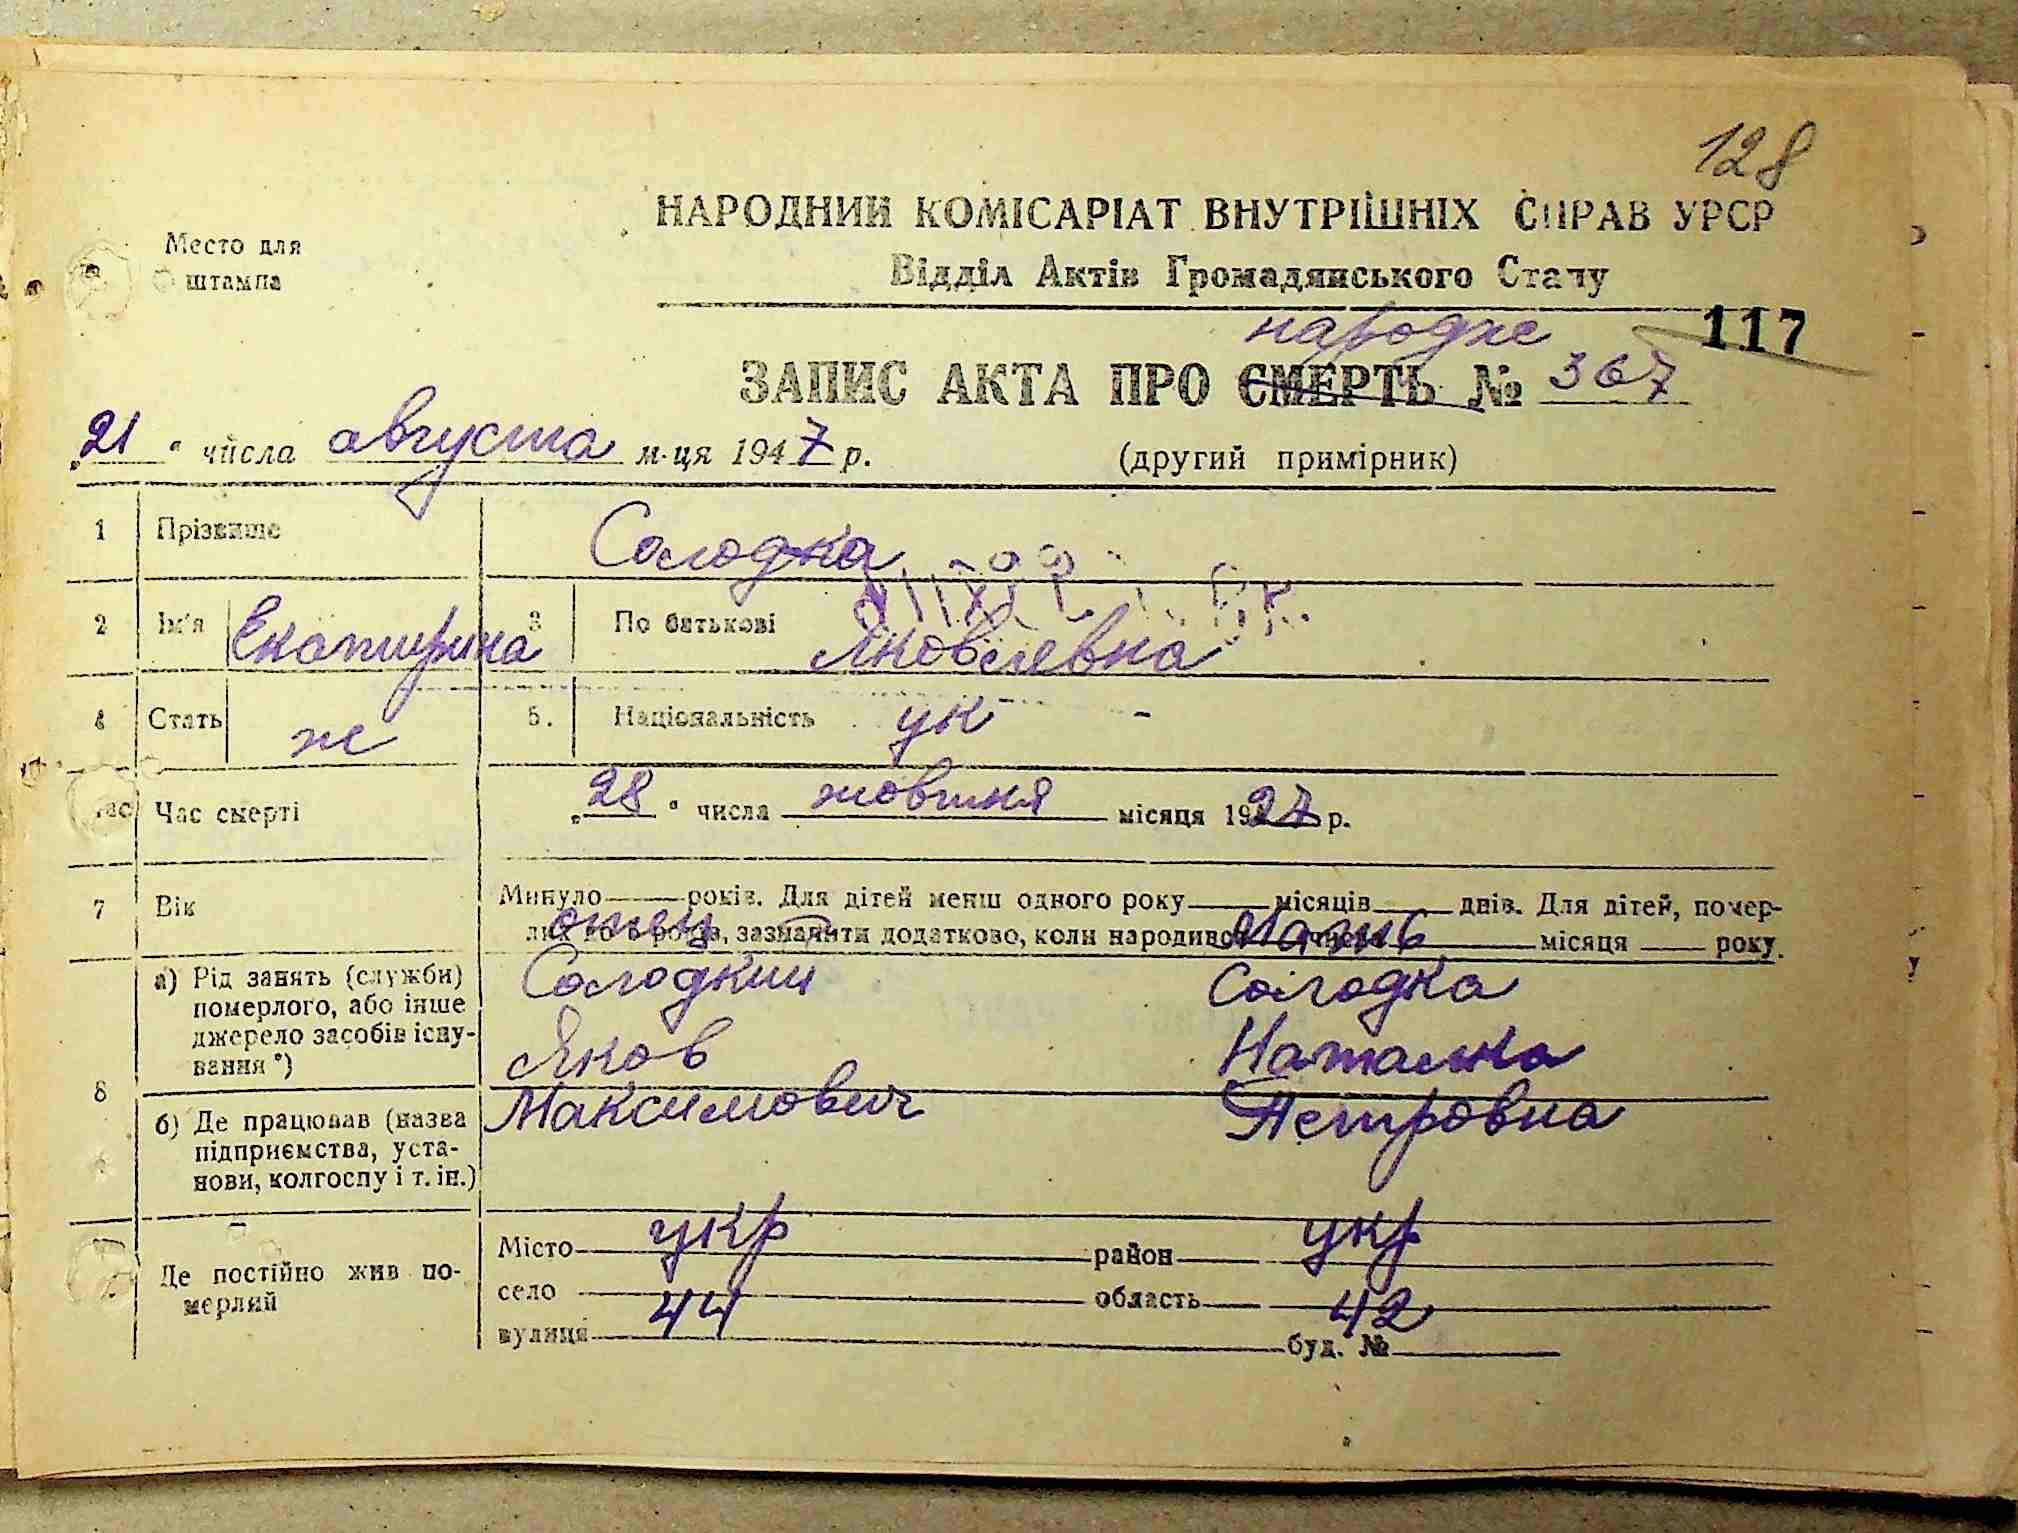 128
НАРОДНИЙ КОМІСАРІАТ ВНУТРІШНІХ СПРАВ УРСР
Место для штампа
Відділ Актів Громадянського Стану
117
народже
ЗАПИС АКТА ПРО СМЕРТЬ № 367
„21“ числа августа м-ця 1947 р. (другий примірник)
1 Прізвище Солодка
2 Ім'я Екатирина 3 По батькові Яковлевна
4 Стать ж 5. Національність ук
Час смерті „28“ числа жовтня місяця 1927 р.
7 Вік Минуло року. Для дітей менш одного року місяців днів. Для дітей, помер-
лих до 5 років, зазначити додатково, коли народився числа місяця року.
отец Мать
а) Рід занять (служби) померлого, або інше джерело засобів існу-вання*)
Солодкий Солодка
Яков Наталка
8
б) Де працював (назва підприємства, уста-нови, колгоспу і т. ін.)
Максимович Петровна
Де постійно жив по-мерлий
Місто укр район укр
село 44 область 42
вулиця буд. №